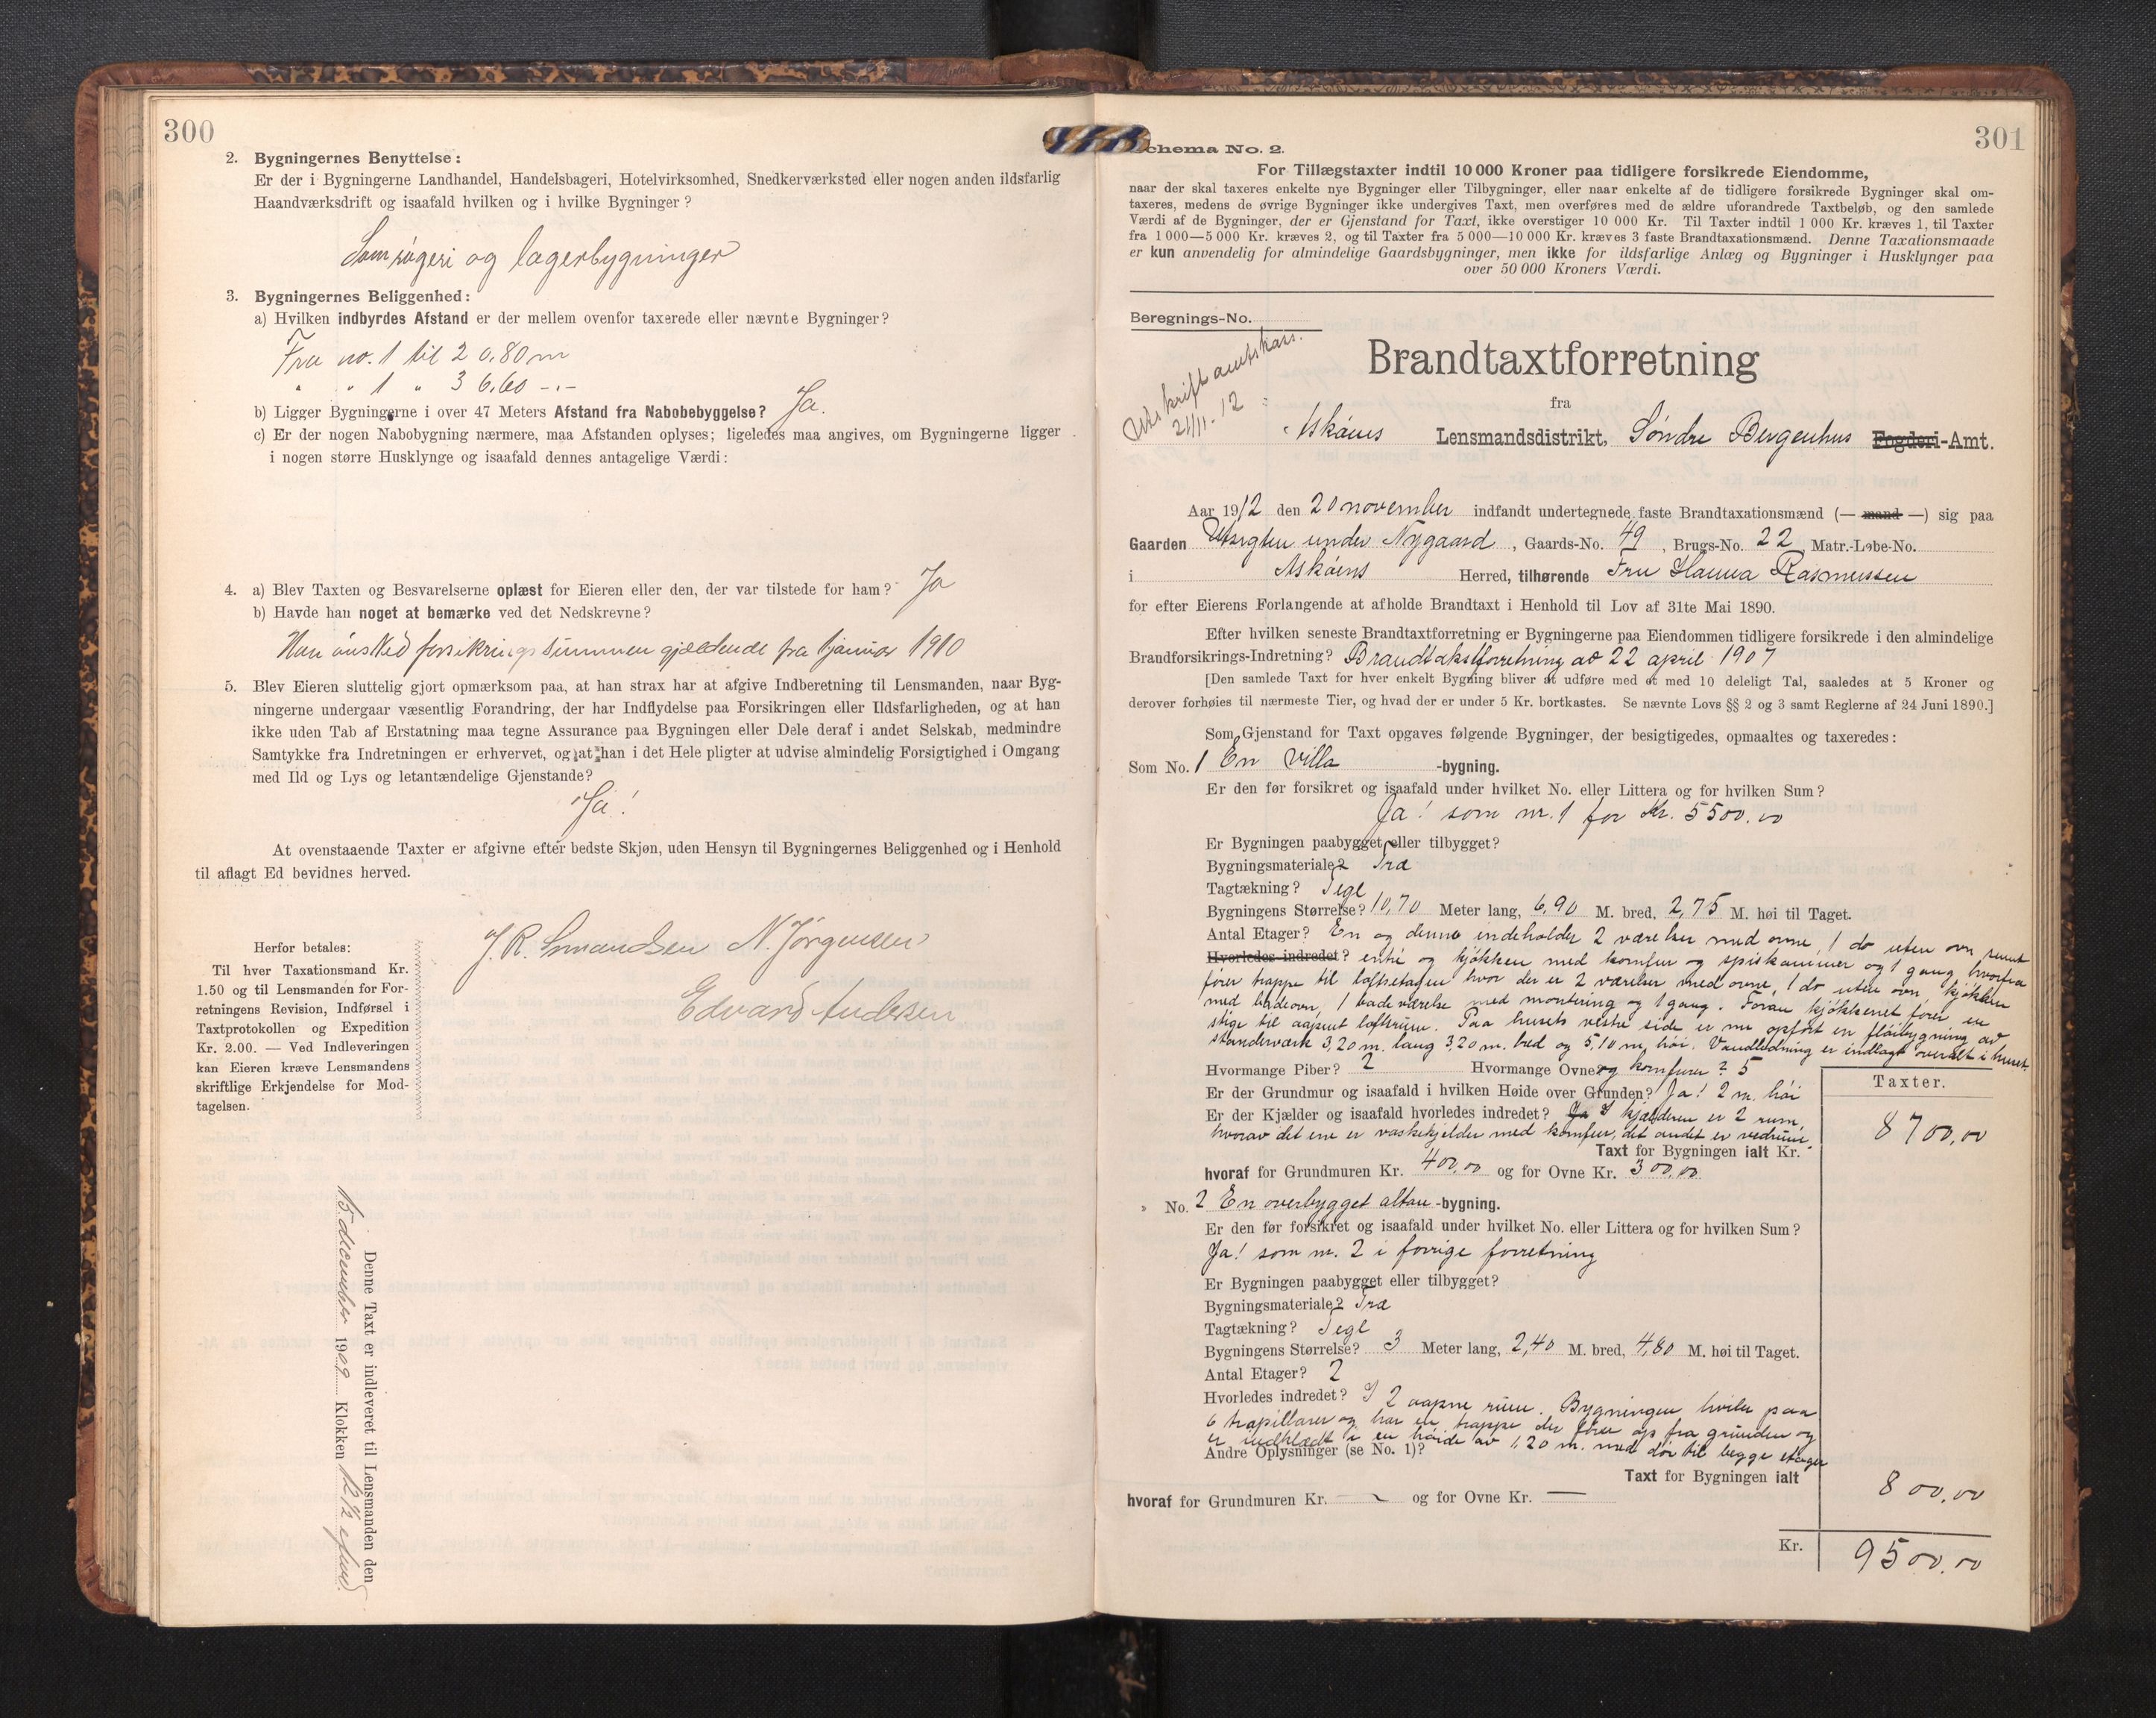 300
2. Bygningernes Benyttelse:
Er der i Bygningerne Landhandel, Handelsbageri, Hotelvirksomhed, Snedkerværksted eller nogen anden ildsfarlig
Haandværksdrift og isaafald hvilken og i hvilke Bygninger?
Som røgeri og lagerbygninger
3. Bygningernes Beliggenhed:
a) Hvilken indbyrdes Afstand er der mellem ovenfor taxerede eller nævnte Bygninger?
Fra no. 1 til 2 0,80 m
" " 1 " 3 6,60 -"-
b) Ligger Bygningerne i over 47 Meters Afstand fra Nabobebyggelse? Ja.
c) Er der nogen Nabobygning nærmere, maa Afstanden oplyses; ligeledes maa angives, om Bygningerne ligger
i nogen større Husklynge og isaafald dennes antagelige Værdi:
4. a) Blev Taxten og Besvarelserne oplæst for Eieren eller den, der var tilstede for ham? Ja
b) Havde han noget at bemærke ved det Nedskrevne?
Han ønsked forsikringssummen gjældende fra 1 januar 1910
5. Blev Eieren sluttelig gjort opmærksom paa, at han strax har at afgive Indberetning til Lensmanden, naar Byg-
ningerne undergaar væsentlig Forandring, der har Indflydelse paa Forsikringen eller Ildsfarligheden, og at han
ikke uden Tab af Erstatning maa tegne Assurance paa Bygningen eller Dele deraf i andet Selskab, medmindre
Samtykke fra Indretningen er erhvervet, og at han i det Hele pligter at udvise almindelig Forsigtighed i Omgang
med Ild og Lys og letantændelige Gjenstande?
Ja!
At ovenstaaende Taxter er afgivne efter bedste Skjøn, uden Hensyn til Bygningernes Beliggenhed og i Henhold
til aflagt Ed bevidnes herved.
J. R. Smaadsen N. Jørgensen
Edvard Andersen
Herfor betales:
Til hver Taxationsmand Kr.
1.50 og til Lensmanden for For-
retningens Revision, Indførsel i
Taxtprotokollen og Expedition
Kr. 2.00. — Ved Indleveringen
kan Eieren kræve Lensmandens
skriftlige Erkjendelse for Mod-
tagelsen.
Denne Taxt er indleveret til Lensmanden den
15 december 1909 Klokken 12 1/2 efmd.
301
Schema No. 2.
For Tillægstaxter indtil 10 000 Kroner paa tidligere forsikrede Eiendomme,
naar der skal taxeres enkelte nye Bygninger eller Tilbygninger, eller naar enkelte af de tidligere forsikrede Bygninger skal om-
taxeres, medens de øvrige Bygninger ikke undergives Taxt, men overføres med de ældre uforandrede Taxtbeløb, og den samlede
Værdi af de Bygninger, der er Gjenstand for Taxt, ikke overstiger 10 000 Kr. Til Taxter indtil 1 000 Kr. kræves 1, til Taxter
fra 1 000—5 000 Kr. kræves 2, og til Taxter fra 5 000—10 000 Kr. kræves 3 faste Brandtaxationsmænd. Denne Taxationsmaade
er kun anvendelig for almindelige Gaardsbygninger, men ikke for ildsfarlige Anlæg og Bygninger i Husklynger paa
over 50 000 Kroners Værdi.
Beregnings-No.
Utskrift amtskass.
21/11. 12
Brandtaxtforretning
fra
Askøens Lensmandsdistrikt, Søndre Bergenhus Fogderi-Amt.
Aar 1912 den 20 november indfandt undertegnede faste Brandtaxationsmænd (— mand —) sig paa
Gaarden Utsigten under Nygaard, Gaards-No. 49, Brugs-No. 22 Matr.-Løbe-No.
i Askøens Herred, tilhørende Fru Hanna Rasmussen
for efter Eierens Forlangende at afholde Brandtaxt i Henhold til Lov af 31te Mai 1890.
Efter hvilken seneste Brandtaxtforretning er Bygningerne paa Eiendommen tidligere forsikrede i den almindelige
Brandforsikrings-Indretning? Brandtakstforretning av 22 april 1907
[Den samlede Taxt for hver enkelt Bygning bliver at udføre med et med 10 deleligt Tal, saaledes at 5 Kroner og
derover forhøies til nærmeste Tier, og hvad der er under 5 Kr. bortkastes. Se nævnte Lovs §§ 2 og 3 samt Reglerne af 24 Juni 1890.]
Som Gjenstand for Taxt opgaves følgende Bygninger, der besigtigedes, opmaaltes og taxeredes:
Som No. 1 En Villa -bygning.
Er den før forsikret og isaafald under hvilket No. eller Littera og for hvilken Sum?
Ja! som nr. 1 for Kr. 5500,00
Er Bygningen paabygget eller tilbygget?
Bygningsmateriale? Træ
Tagtækning? Tegl
Bygningens Størrelse? 10,70 Meter lang, 6,90 M. bred, 2,75 M. høi til Taget.
Antal Etager? En og denne indeholder 2 værelser med ovne, 1 do uten ovn samt
Hvorledes indredet? entré og kjøkken med komfur og spiskammer og 1 gang hvorfra
fører trappe til loftsetagen hvor der er 2 værelser med ovne, 1 do uten ovn kjøkken
med badeovn, 1 badeværelse med montering og 1 gang. Foran kjøkkenet fører en
stige til aapent loftsrum. Paa husets vestre side er nu opført en fløibygning av
standerværk 3,20 m. lang 3,20 m. bred og 5,10 m. høi. Vandledning er indlagt overalt i huset.
Hvormange Piber? 2 Hvormange Ovne og komfurer? 5
Taxter.
Er der Grundmur og isaafald i hvilken Høide over Grunden? Ja! 2 m. høi
Er der Kjælder og isaafald hvorledes indredet? Ja I kjælderen er 2 rum,
hvorav det ene er vaskekjelder med komfur, det andet er vedrum.
8700,00
Taxt for Bygningen ialt Kr.
hvoraf for Grundmuren Kr. 400,00 og for Ovne Kr. 300,00
" No. 2 En overbygget altan -bygning.
Er den før forsikret og isaafald under hvilket No. eller Littera og for hvilken Sum?
Ja! som nr. 2 i forrige forretning
Er Bygningen paabygget eller tilbygget?
Bygningsmateriale? Træ
Tagtækning? Tegl
Bygningens Størrelse? 3 Meter lang, 2,40 M. bred, 4,80 M. høi til Taget.
Antal Etager? 2
Hvorledes indredet? I 2 aapne rum. Bygningen hviler paa
6 træpillarer og har en trappe der fører op fra grunden og
er indklædt i en høide av 1,20 m. med dør til begge etager
Andre Oplysninger (se No. 1)?
Taxt for Bygningen ialt 800,00
hvoraf for Grundmuren Kr. — og for Ovne Kr. —
Kr. 9500,00